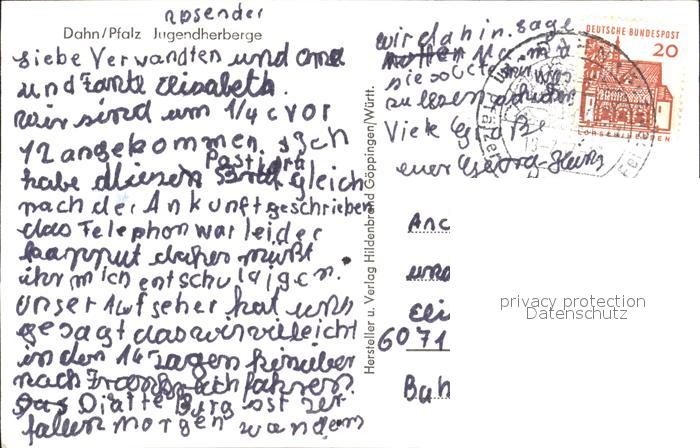 Absender
Dahn/Pfalz Jugendherberge
Liebe Verwandten und oma
und Tante Elisabeth.
wir sind um 1/4 vor
12 angekommen. Ich
habe diesen gleich
nach der Ankunft geschrieben
das Telephon war leider
kapput daher müßt
ihr mich entschuldigen.
unser Aufseher hat uns
gesagt das wir vieleicht
in den 14 Tagen hinüber
nach Frankreich fahren.
Das Burg ist zer
fallen morgen wandern
wir dahin. sage
Mama
sie sollte mir
zu essen schicken
Viele Grüße
euer Georg-Heinz
DEUTSCHE BUNDESPOST
20
LORSCH/HESSEN
Hersteller u. Verlag Hildenbrand Göppingen/Württ.
und
Eli
6071
Bah
privacy protection
Datenschutz